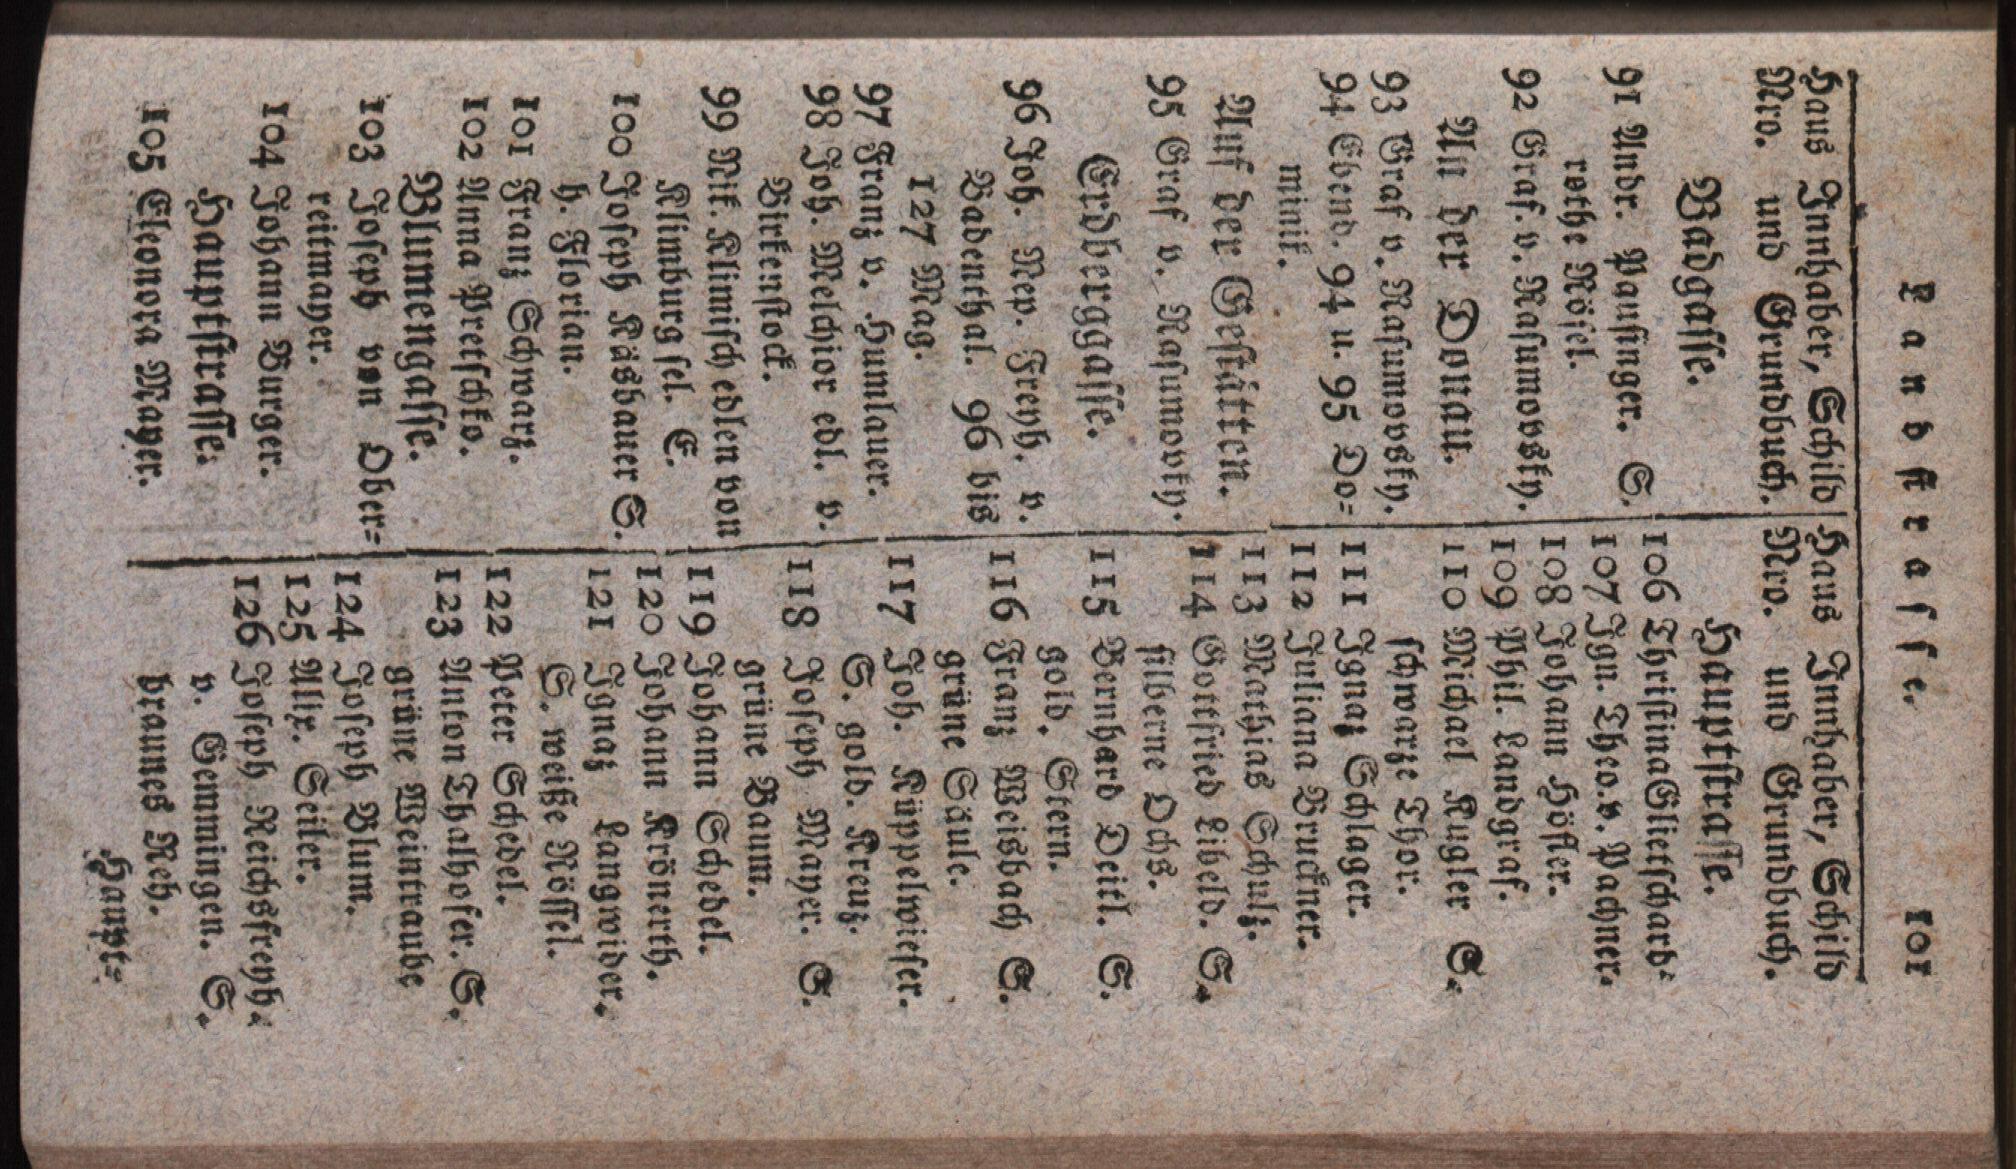 Landstrasse. 101
Haus Innhaber, Schild
Nro. und Grundbuch.
Badgasse.
91 Andr. Pausinger. S.
rothe Rösel.
92 Graf. v. Rasumovsky.
An der Donau.
93 Graf v. Rasumovsky.
94 Ebend. 94 u. 95 Do=
minik.
Auf der Gestätten.
95 Graf v. Rasumovky.
Erdberggasse.
96 Joh. Nep. Freyh. v.
Badenthal. 96 bis
127 Mag.
97 Franz v. Humlauer.
98 Joh. Melchior edl. v.
Birkenstock.
99 Nik. Klimisch edlen von
Klimburg sel. E.
100 Joseph Käsbauer S.
h. Florian.
101 Franz Schwarz.
102 Anna Pretschko.
Blumengasse.
103 Joseph von Ober=
reitmayer.
104 Johann Burger.
Hauptstrasse.
105 Eleonora Mayer.
Haus Innhaber, Schild
Nro. und Grundbuch.
Hauptstrasse.
106 Christina Glietschard=
107 Ign. Theo. v. Pachner.
108 Johann Höfler.
109 Phil. Landgraf.
110 Michael Kugler S.
schwarze Thor.
111 Ignaz Schlager.
112 Juliana Bruckner.
113 Mathias Schulz.
114 Gottfried Libeld. S.
silberne Ochs.
115 Bernhard Deitl. S.
gold. Stern.
116 Franz Weisbach S.
grüne Säule.
117 Joh. Küppelwieser.
S. gold. Kreuz.
118 Joseph Mayer. S.
grüne Baum.
119 Johann Schedel.
120 Johann Krönerth.
121 Ignaz Langwider.
S. weiße Rössel.
122 Peter Schedel.
123 Anton Thalhofer. S.
grüne Weintraube
124 Joseph Blum.
125 Alix. Seiler.
126 Joseph Reichsfreyh.
v. Gemmingen. S.
braunes Reh.
Haupt=